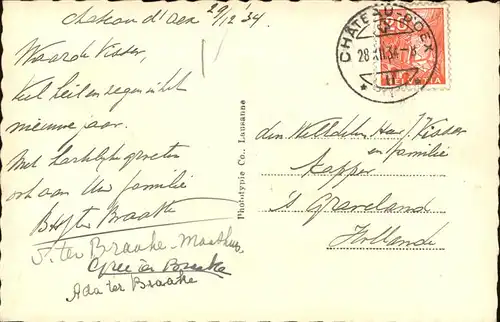 Chateau d'Oex 29/12 '34
Waarde Visser,
Veel heil en zegen in het
nieuwe jaar.
Met hartelijke groeten
ook aan Uw familie
ter Braake
ter Braake-
ter Braake
Ada ter Braake
Phototypie Co., Lausanne
CHÂTEAU-D'OEX
28.XII.34-8
20
den Heer J. Visser
en familie
Kapper
's Graveland
Holland